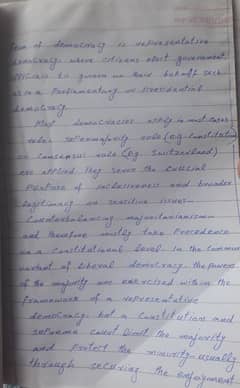 form of democracy is representative
democracy where citizens elect government
officials to govern on their behalf such
as in a Parliamentary or Presidential
democracy
Most democracies apply in most cases
rule (e.g. Constitution
or consensus rule (e.g. Switzerland)
are applied. They serve the crucial
purpose of inclusiveness and broader
legitimacy on sensitive issues
Counterbalancing majoritarianism
and therefore mostly take Precedence
on a Constitutional level. In the common
variant of liberal democracy the powers
of the majority are exercised within the
framework of a representative
democracy but a constitutions and
Limit the majority
and Protect the minority usually
through securing the enjoyment